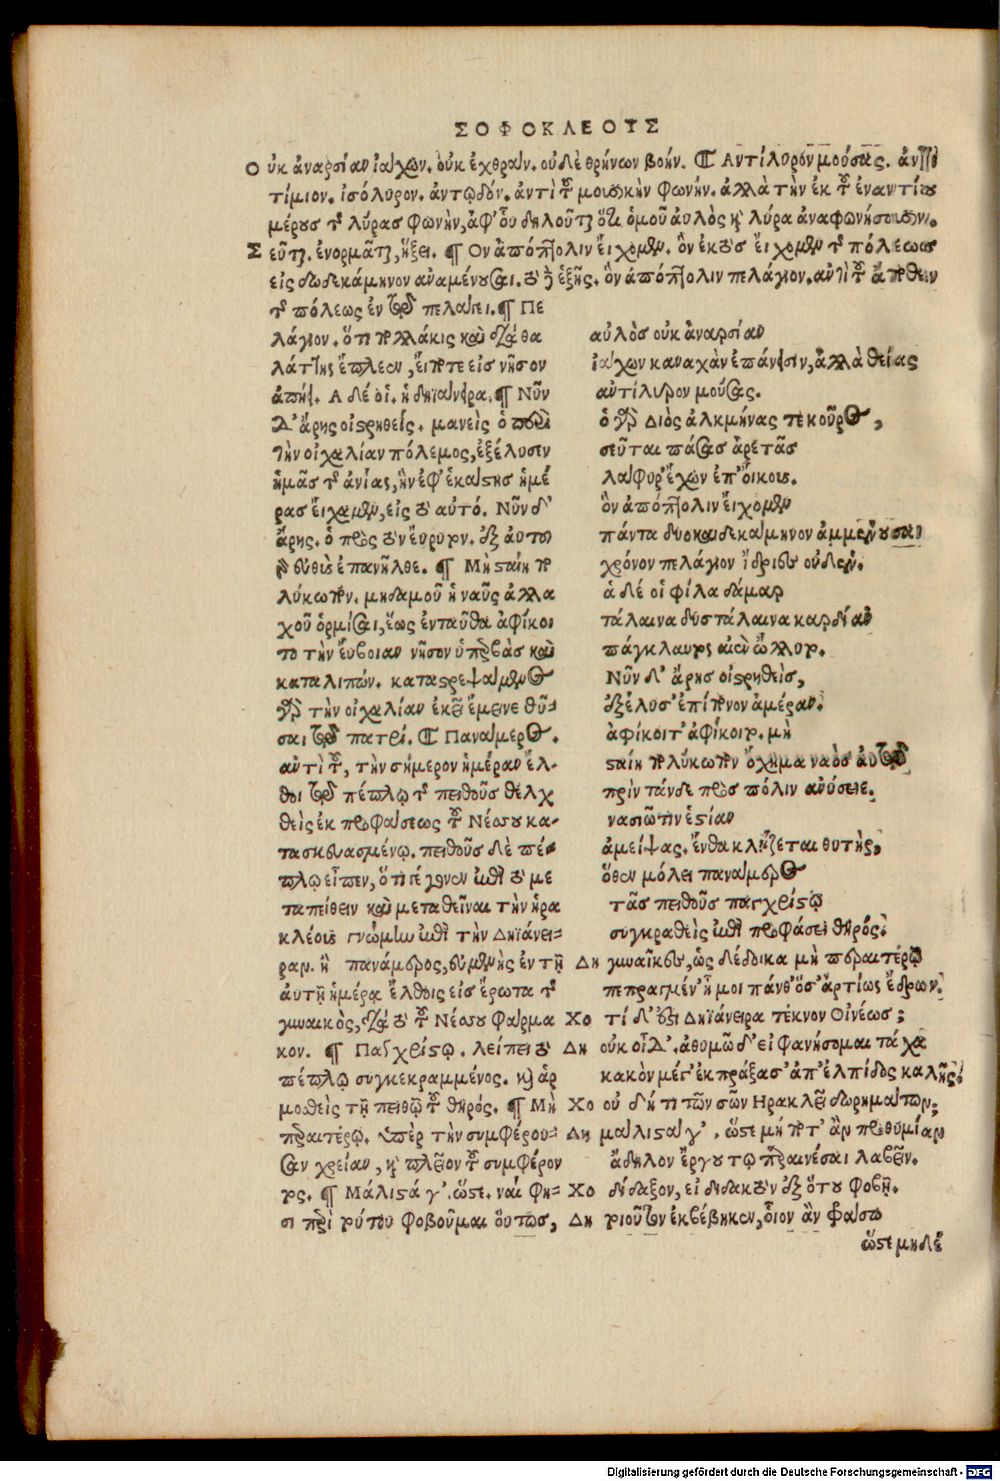 ΣΟΦΟΚΛΕΟΥΣ
Οὐκ ἀναρσίαν ἰάχων. οὐκ ἐχθρὰν. οὐδὲ θρήνων βοήν. Αντίλυρον μούσας.
τίμιον. ἰσόλυρον. ἀντῳδόν. ἀντὶ τοῦ μουσικὴν φωνήν. ἀλλὰ τὴν ἐκ τοῦ ἐναντίου
μέρους τῆς λύρας φωνὴν, ἀφ' οὗ δηλοῦται ὅτι ὁμοῦ αὐλὸς καὶ λύρα ἀναφωνήσουσιν.
Σεῦται. ἐνορμᾶται, ἥξει. Ον ἀπόπτολιν εἴχομεν. ὃν ἐκτὸς εἴχομεν τῆς πόλεως
εἰς δωδεκάμηνον ἀναμένουσαι. τὸ ἑξῆς. ὃν ἀπόπτολιν πελάγιον. ἀντὶ τοῦ ἄπωθεν
τῆς πόλεως ἐν τῷ πελάγει. Πε
λάγιον. ὅτι πολλάκις καὶ διὰ θα
λάττης ἔπλεον, εἴποτε εἰς νῆσον
ἀπῄει. Α δέ οἱ. ἡ δηϊάνειρα. Νῦν
δ' ἄρης οἰστρηθείς. μανεὶς ὁ περὶ
τὴν οἰχαλίαν πόλεμος, ἐξέλυσεν
ἡμᾶς τῆς ἀνίας, ἣν ἐφ' ἑκάστης ἡμέ
ρας εἴχομεν, εἰς τὸ αὐτό. Νῦν δ'
ἄρης. ὁ πρὸς τὸν εὔρυτον. ἐξ αὐτοῦ
εὐθὺς ἐπανῆλθε. Μὴ σταίη πο
λύκωπον. μηδαμοῦ ἡ ναῦς ἀλλα
χοῦ ὁρμίσαι, ἕως ἐνταῦθα ἀφίκοι
το τὴν εὔβοιαν νῆσον ὑπερβὰς καὶ
καταλιπών. καταστρεψάμενος
γὰρ τὴν οἰχαλίαν ἐκεῖ ἔμεινε θῦ-
σαι τῷ πατρί. Πανάμερος.
ἀντὶ τοῦ, τὴν σήμερον ἡμέραν ἔλ-
θοι τῷ πέπλῳ τῆς πειθοῦς θελχ
θεὶς ἐκ προφάσεως τοῦ Νέσσου κα-
τασκευασμένῳ. πειθοῦς δὲ πέ-
πλῳ εἶπεν, ὅτι γέγονεν ἐπὶ τὸ με
ταπείθειν καὶ μεταθεῖναι τὴν ἡρα
κλέους γνώμην ἐπὶ τὴν Δηϊάνει-
ραν. ἢ πανάμερος, εὐμενὴς ἐν τῇ
αὐτῇ ἡμέρᾳ ἔλθοις εἰς ἔρωτα τῆς
γυναικὸς, διὰ τὸ τοῦ Νέσσου φάρμα
κον. Παγχρίστῳ. λείπει τὸ
πέπλῳ συγκεκραμμένος. καὶ ἁρ
μοσθεὶς τῇ πειθοῖ τοῦ θηρός. Μὴ
περαιτέρῳ. ὑπὲρ τὴν συμφέρου-
σαν χρείαν, καὶ πλεῖον τοῦ συμφέρον
τος. Μάλιστά γ'. ὥστε. ναί φη-
σι περὶ τούτου φοβοῦμαι οὕτως,
αὐλὸς οὐκ ἀναρσίαν
ἰάχων καναχὰν ἐπάνεισιν, ἀλλὰ θείας
ἀντίλυρον μούσας.
ὁ γὰρ Διὸς ἀλκμήνας τε κοῦρος,
σεῦται πάσας ἀρετᾶς
λάφυρ' ἔχων ἐπ' οἴκους.
ὃν ἀπόπτολιν εἴχομεν
πάντα δυοκαιδεκάμηνον ἀμμένουσαι
χρόνον πελάγιον ἴδριες οὐδέν.
ἁ δέ οἱ φίλα δάμαρ
τάλαινα δυστάλαινα καρδίαν
πάγκλαυτος αἰὲν ὤλλυτο.
Νῦν δ' ἄρης οἰστρηθεὶς,
ἐξέλυσ' ἐπίπονον ἁμέραν.
ἀφίκοιτ' ἀφίκοιτο. μὴ
σταίη πολύκωπον ὄχημα ναὸς αὐτῷ
πρὶν τάνδε πρὸς πόλιν ἀνύσειε.
νασιῶτιν ἑστίαν
ἀμείψας. ἔνθα κλῄζεται θυτὴρ,
ὅθεν μόλει πανάμερος
τᾶς πειθοῦς παγχρίστῳ
συγκραθεὶς ἐπὶ προφάσει θηρός.
Δη γυναῖκες, ὡς δέδοικα μὴ περαιτέρῳ
πεπραγμέν' ᾖ μοι πάνθ' ὅσ' ἀρτίως ἔδρων.
Χο τί δ' ἐστὶ Δηϊάνειρα τέκνον Οἰνέως;
Δη οὐκ οἶδ'. ἀθυμῶ δ' εἰ φανήσομαι τάχα
κακὸν μέγ' ἐκπράξασ' ἀπ' ἐλπίδος καλῆς.
Χο οὐ δή τι τῶν σῶν Ηρακλεῖ δωρημάτων;
Δη μάλιστά γ'. ὥστε μήποτ' ἂν προθυμίαν
ἄδηλον ἔργου τῳ παραινέσαι λαβεῖν.
Χο δίδαξον, εἰ διδακτὸν ἐξ ὅτου φοβῇ.
Δη τοιοῦτον ἐκβέβηκεν, οἷον ἂν φράσω
ὥστε μηδέ
Digitalisierung gefördert durch die Deutsche Forschungsgemeinschaft - DFG